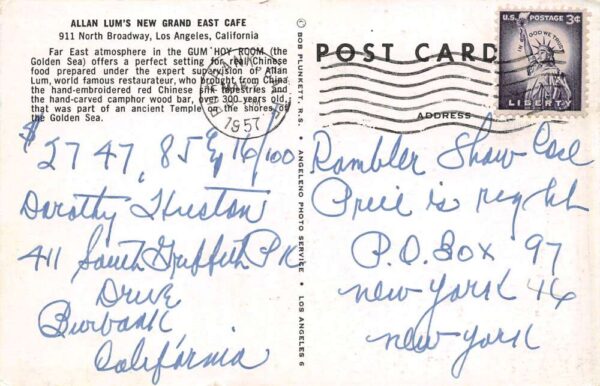 ALLAN LUM'S NEW GRAND EAST CAFE
911 North Broadway, Los Angeles, California
Far East atmosphere in the GUM HOY ROOM (the
Golden Sea) offers a perfect setting for real Chinese
food prepared under the expert supervision of Allan
Lum, world famous restaurateur, who brought from China
the hand-embroidered red Chinese silk tapestries and
the hand-carved camphor wood bar, over 300 years old,
that was part of an ancient Temple on the shores of
the Golden Sea.
$2747.85 & 16/100
Dorothy Huston
411 South Griffith PK
Drive
Burbank,
California
© BOB PLUNKETT, R.S. • ANGELENO PHOTO SERVICE • LOS ANGELES 6
POST CARD
ADDRESS
1957
U.S. POSTAGE 3¢
IN GOD WE TRUST
LIBERTY
Rambler Show Case
Price is right
P.O. Box 97
New York 46
New York